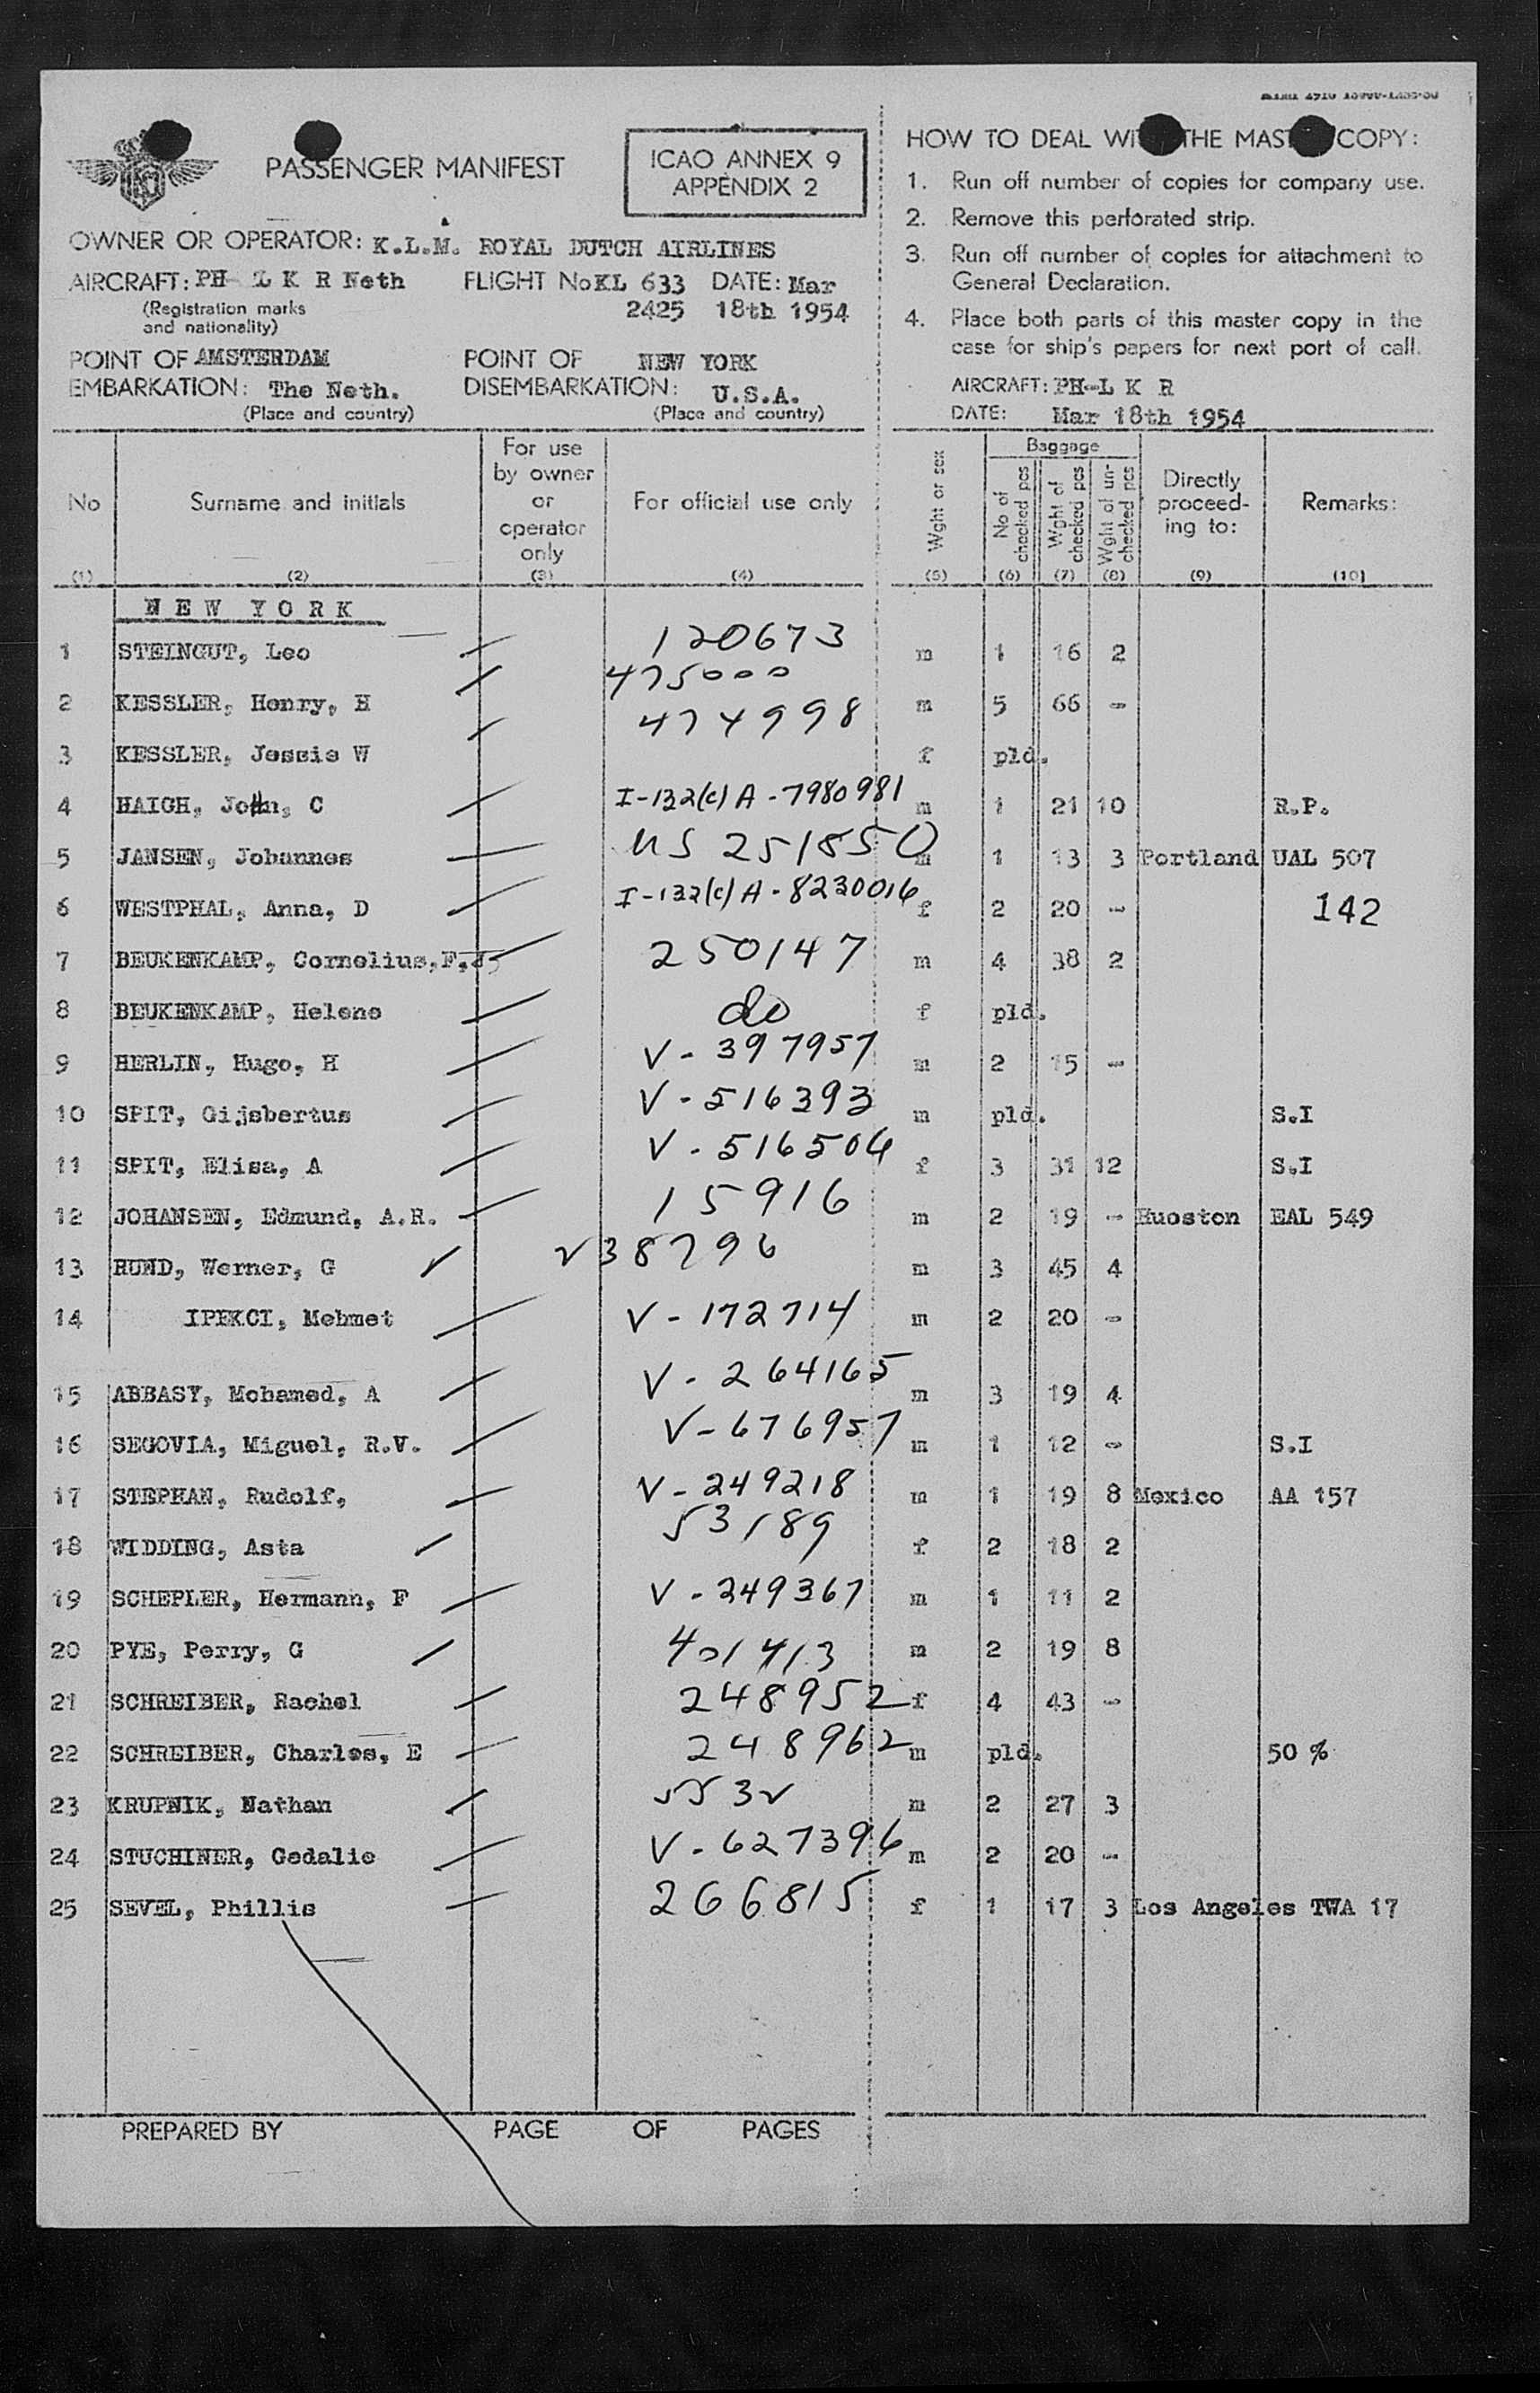 PASSENGER MANIFEST
ICAO ANNEX 9
APPENDIX 2
OWNER OR OPERATOR: K.L.M. ROYAL DUTCH AIRLINES
AIRCRAFT: PH- L K R Neth FLIGHT No KL 633 DATE: Mar
(Registration marks 2425 18th 1954
and nationality)
POINT OF AMSTERDAM POINT OF NEW YORK
EMBARKATION: The Neth. DISEMBARKATION: U.S.A.
(Place and country) (Place and country)
HOW TO DEAL WI THE MAS COPY:
1. Run off number of copies for company use.
2. Remove this perforated strip.
3. Run off number of copies for attachment to
General Declaration.
4. Place both parts of this master copy in the
case for ship's papers for next port of call.
AIRCRAFT: PH-L K R
DATE: Mar 18th 1954
No Surname and initials For use by owner or operator only For official use only Wght or sex Baggage No of checked pcs Wght of checked pcs Wght of un-checked pcs Directly proceed-ing to: Remarks:
(1) (2) (3) (4) (5) (6) (7) (8) (9) (10)
NEW YORK
1 STEINGUT, Leo 120673 m 1 16 2
2 KESSLER, Henry, H 475000 m 5 66 -
3 KESSLER, Jessie W 474998 f pld.
4 HAIGH, John, C I-132(c) A-7980981 m 1 21 10 R.P.
5 JANSEN, Johannes US 251850 m 1 13 3 Portland UAL 507
6 WESTPHAL, Anna, D I-132(c) A-8230016 f 2 20 - 142
7 BEUKENKAMP, Cornelius,F,J 250147 m 4 38 2
8 BEUKENKAMP, Helene do f pld.
9 HERLIN, Hugo, H V-397957 m 2 15 -
10 SPIT, Gijsbertus V-516393 m pld. S.I
11 SPIT, Elisa, A V-516504 f 3 31 12 S.I
12 JOHANSEN, Edmund, A.R. 15916 m 2 19 - Huoston EAL 549
13 RUND, Werner, G V38796 m 3 45 4
14 IPEKCI, Mehmet V-172714 m 2 20 -
15 ABBASY, Mohamed, A V-264165 m 3 19 4
16 SEGOVIA, Miguel, R.V. V-676957 m 1 12 - S.I
17 STEPHAN, Rudolf, V-249218 m 1 19 8 Mexico AA 157
18 WIDDING, Asta 53189 f 2 18 2
19 SCHEPLER, Hermann, F V-249367 m 1 11 2
20 PYE, Perry, G 401413 m 2 19 8
21 SCHREIBER, Rachel 248952 f 4 43 -
22 SCHREIBER, Charles, E 248962 m pld. 50 %
23 KRUPNIK, Nathan m 2 27 3
24 STUCHINER, Gedalie V-627396 m 2 20 -
25 SEVEL, Phillis 266815 f 1 17 3 Los Angeles TWA 17
PREPARED BY PAGE OF PAGES